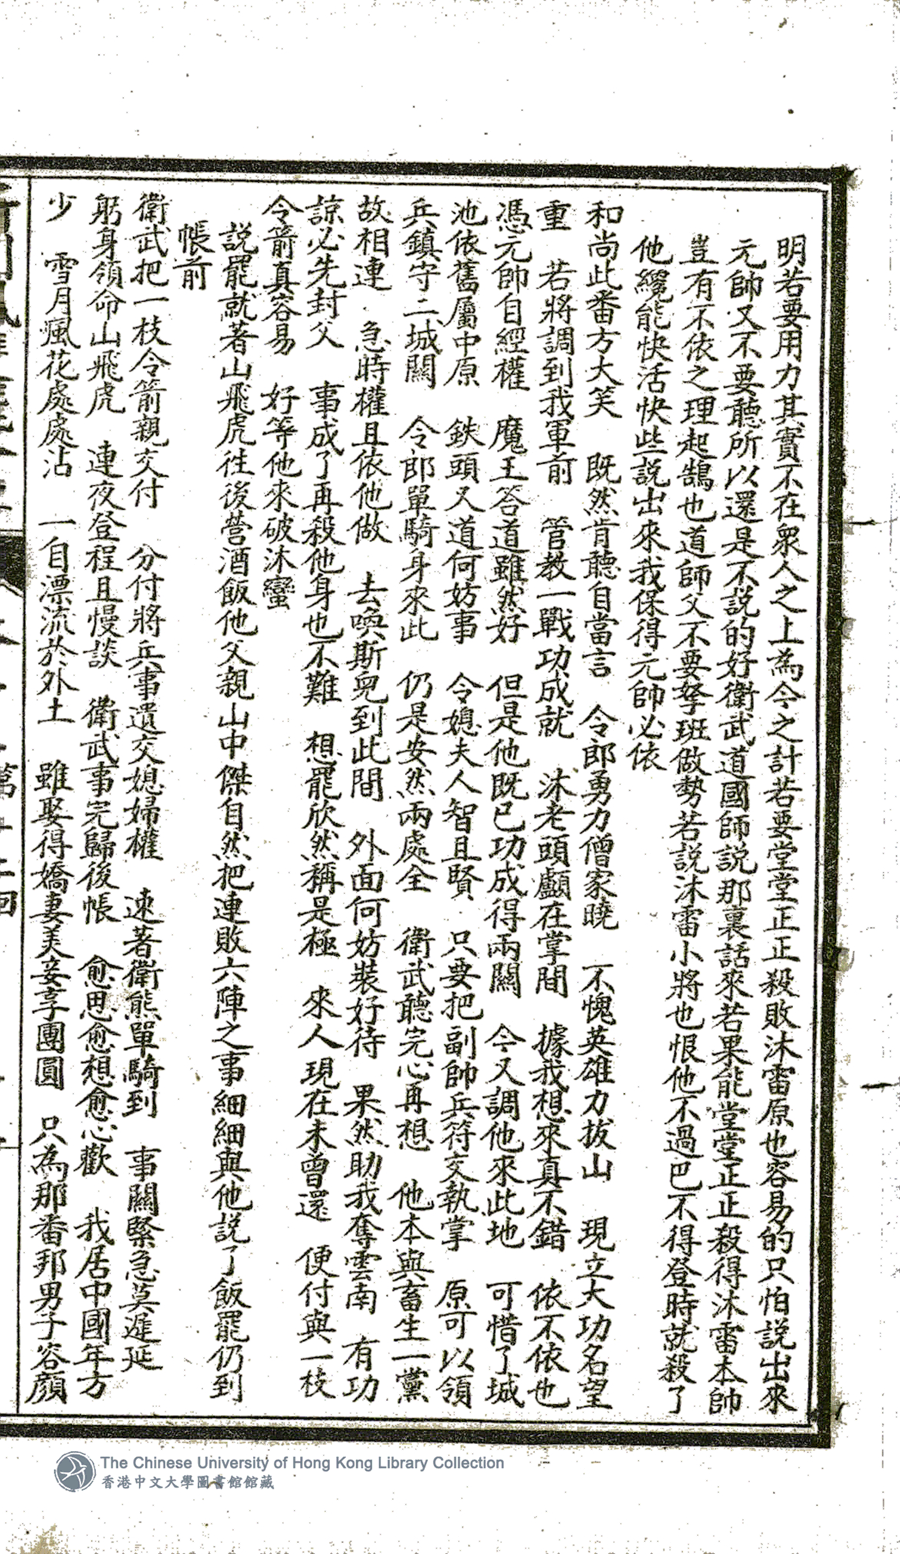 明若要用力其實不在衆人之上為今之計若要堂堂正正殺敗沐雷原也容易的只怕説出來
元帥又不要聽所以還是不説的好衛武道國師説那裏話來若果能堂堂正正殺得沐雷本帥
豈有不依之理起鵠也道師父不要拏班做勢若説沐雷小將也恨他不過巴不得登時就殺了
他纔能快活快些説出來我保得元帥必依
和尚此番方大笑　既然肯聽自當言　令郎勇力僧家曉　不愧英雄力拔山　現立大功名望
重　若將調到我軍前　管教一戰功成就　沐老頭顱在掌間　據我想來真不錯　依不依也
憑元帥自經權　魔王答道雖然好　但是他既已功成得兩關　今又調他來此地　可惜了城
池依舊屬中原　鉄頭又道何妨事　令媳夫人智且賢　只要把副帥兵符交執掌　原可以領
兵鎮守二城關　令郎單騎身來此　仍是安然兩處全　衛武聽完心再想　他本與畜生一黨
故相連　急時權且依他做　去喚斯兒到此間　外面何妨裝好待　果然助我奪雲南　有功
諒必先封父　事成了再殺他身也不難　想罷欣然稱是極　來人現在未曾還　便付與一枝
令箭真容易　好等他來破沐蠻
説罷就著山飛虎往後營酒飯他父親山中傑自然把連敗六陣之事細細與他説了飯罷仍到
帳前
衛武把一枝令箭親交付　分付將兵事遺交媳婦權　速著衛熊單騎到　事關緊急莫遲延
躬身領命山飛虎　連夜登程且慢談　衛武事完歸後帳　愈思愈想愈心歡　我居中國年方
少　雪月風花處處沾　一自漂流於外土　雖娶得嬌妻美妾享團圓　只為那番邦男子容顏
The Chinese University of Hong Kong Library Collection
香港中文大學圖書館館藏